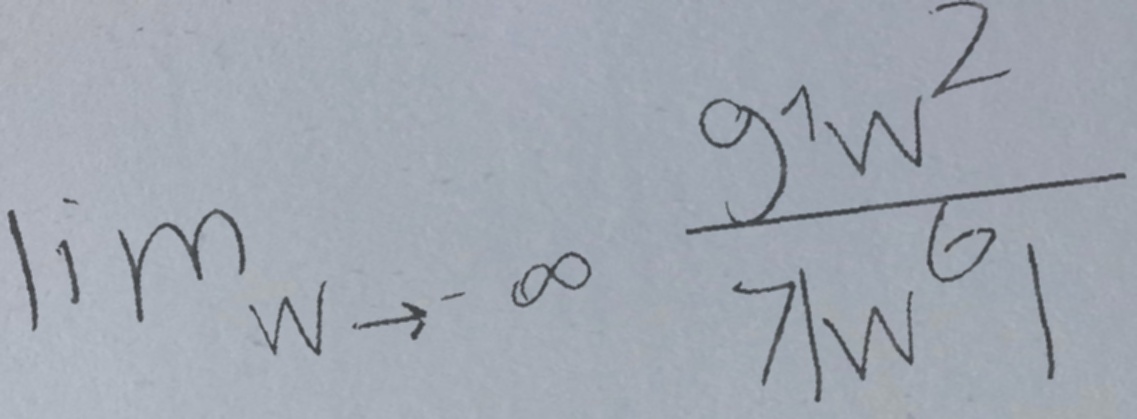 \lim_{w \to -\infty} \frac{9^1 w^2}{7|w^6|}